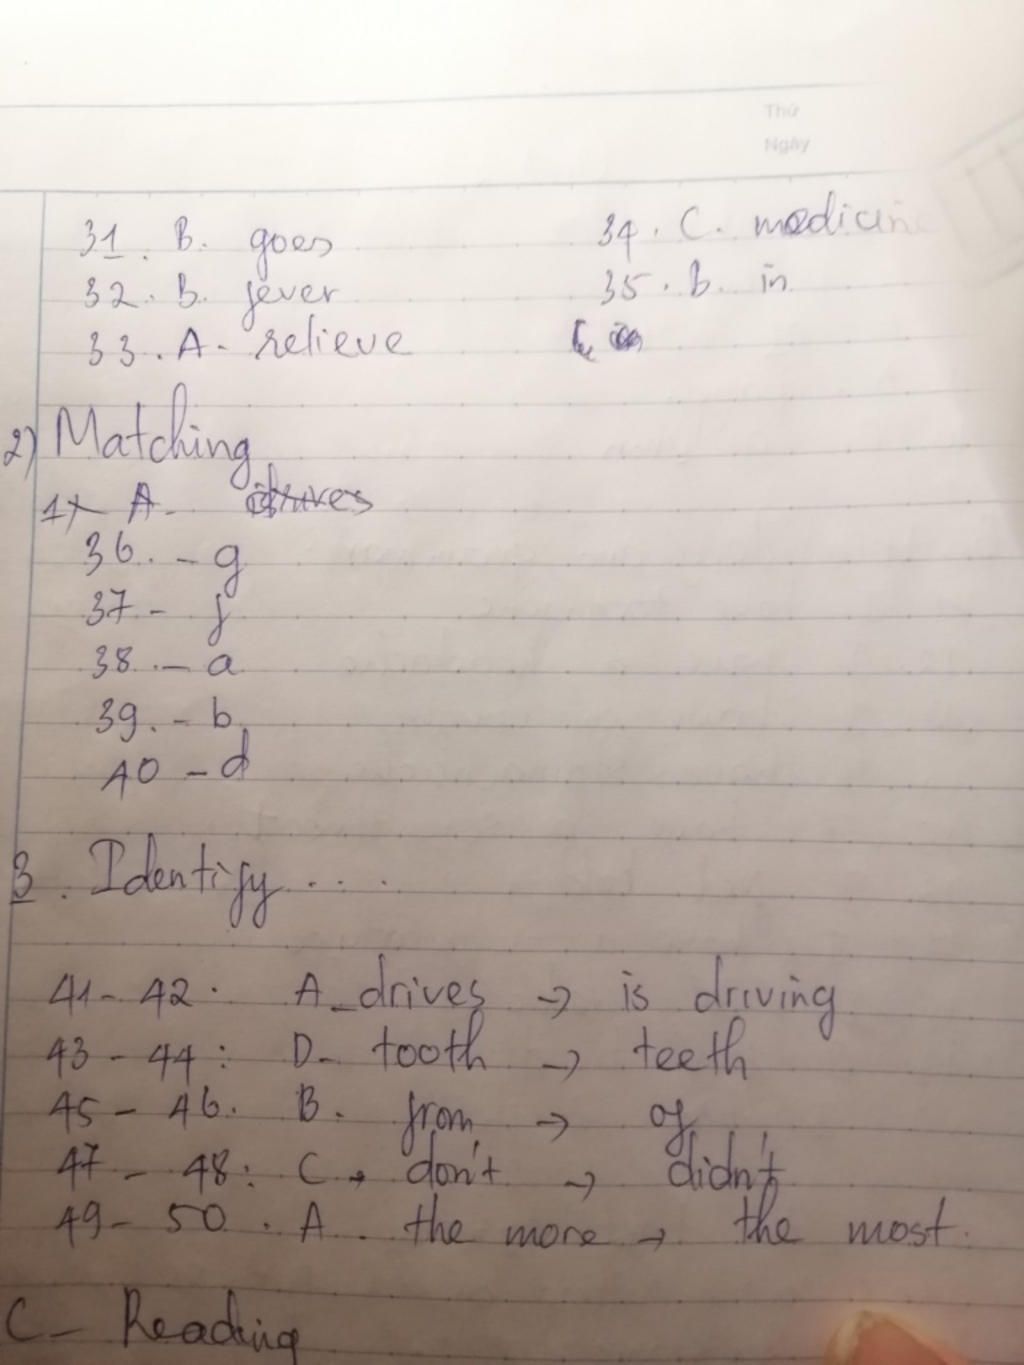 Thứ
Ngày
31. B. goes
32. B. fever
33. A- relieve
34. C. medicine
35. B. in
2) Matching
1) A- drives
36. - g
37 - f
38. - a
39. - b
40 - d
3. Identify ....
41- 42. A_drives → is driving
43 - 44: D- tooth → teeth
45 - 46. B. from → of
47 - 48: C. don't → didn't
49 - 50. A. the more → the most.
C - Reading